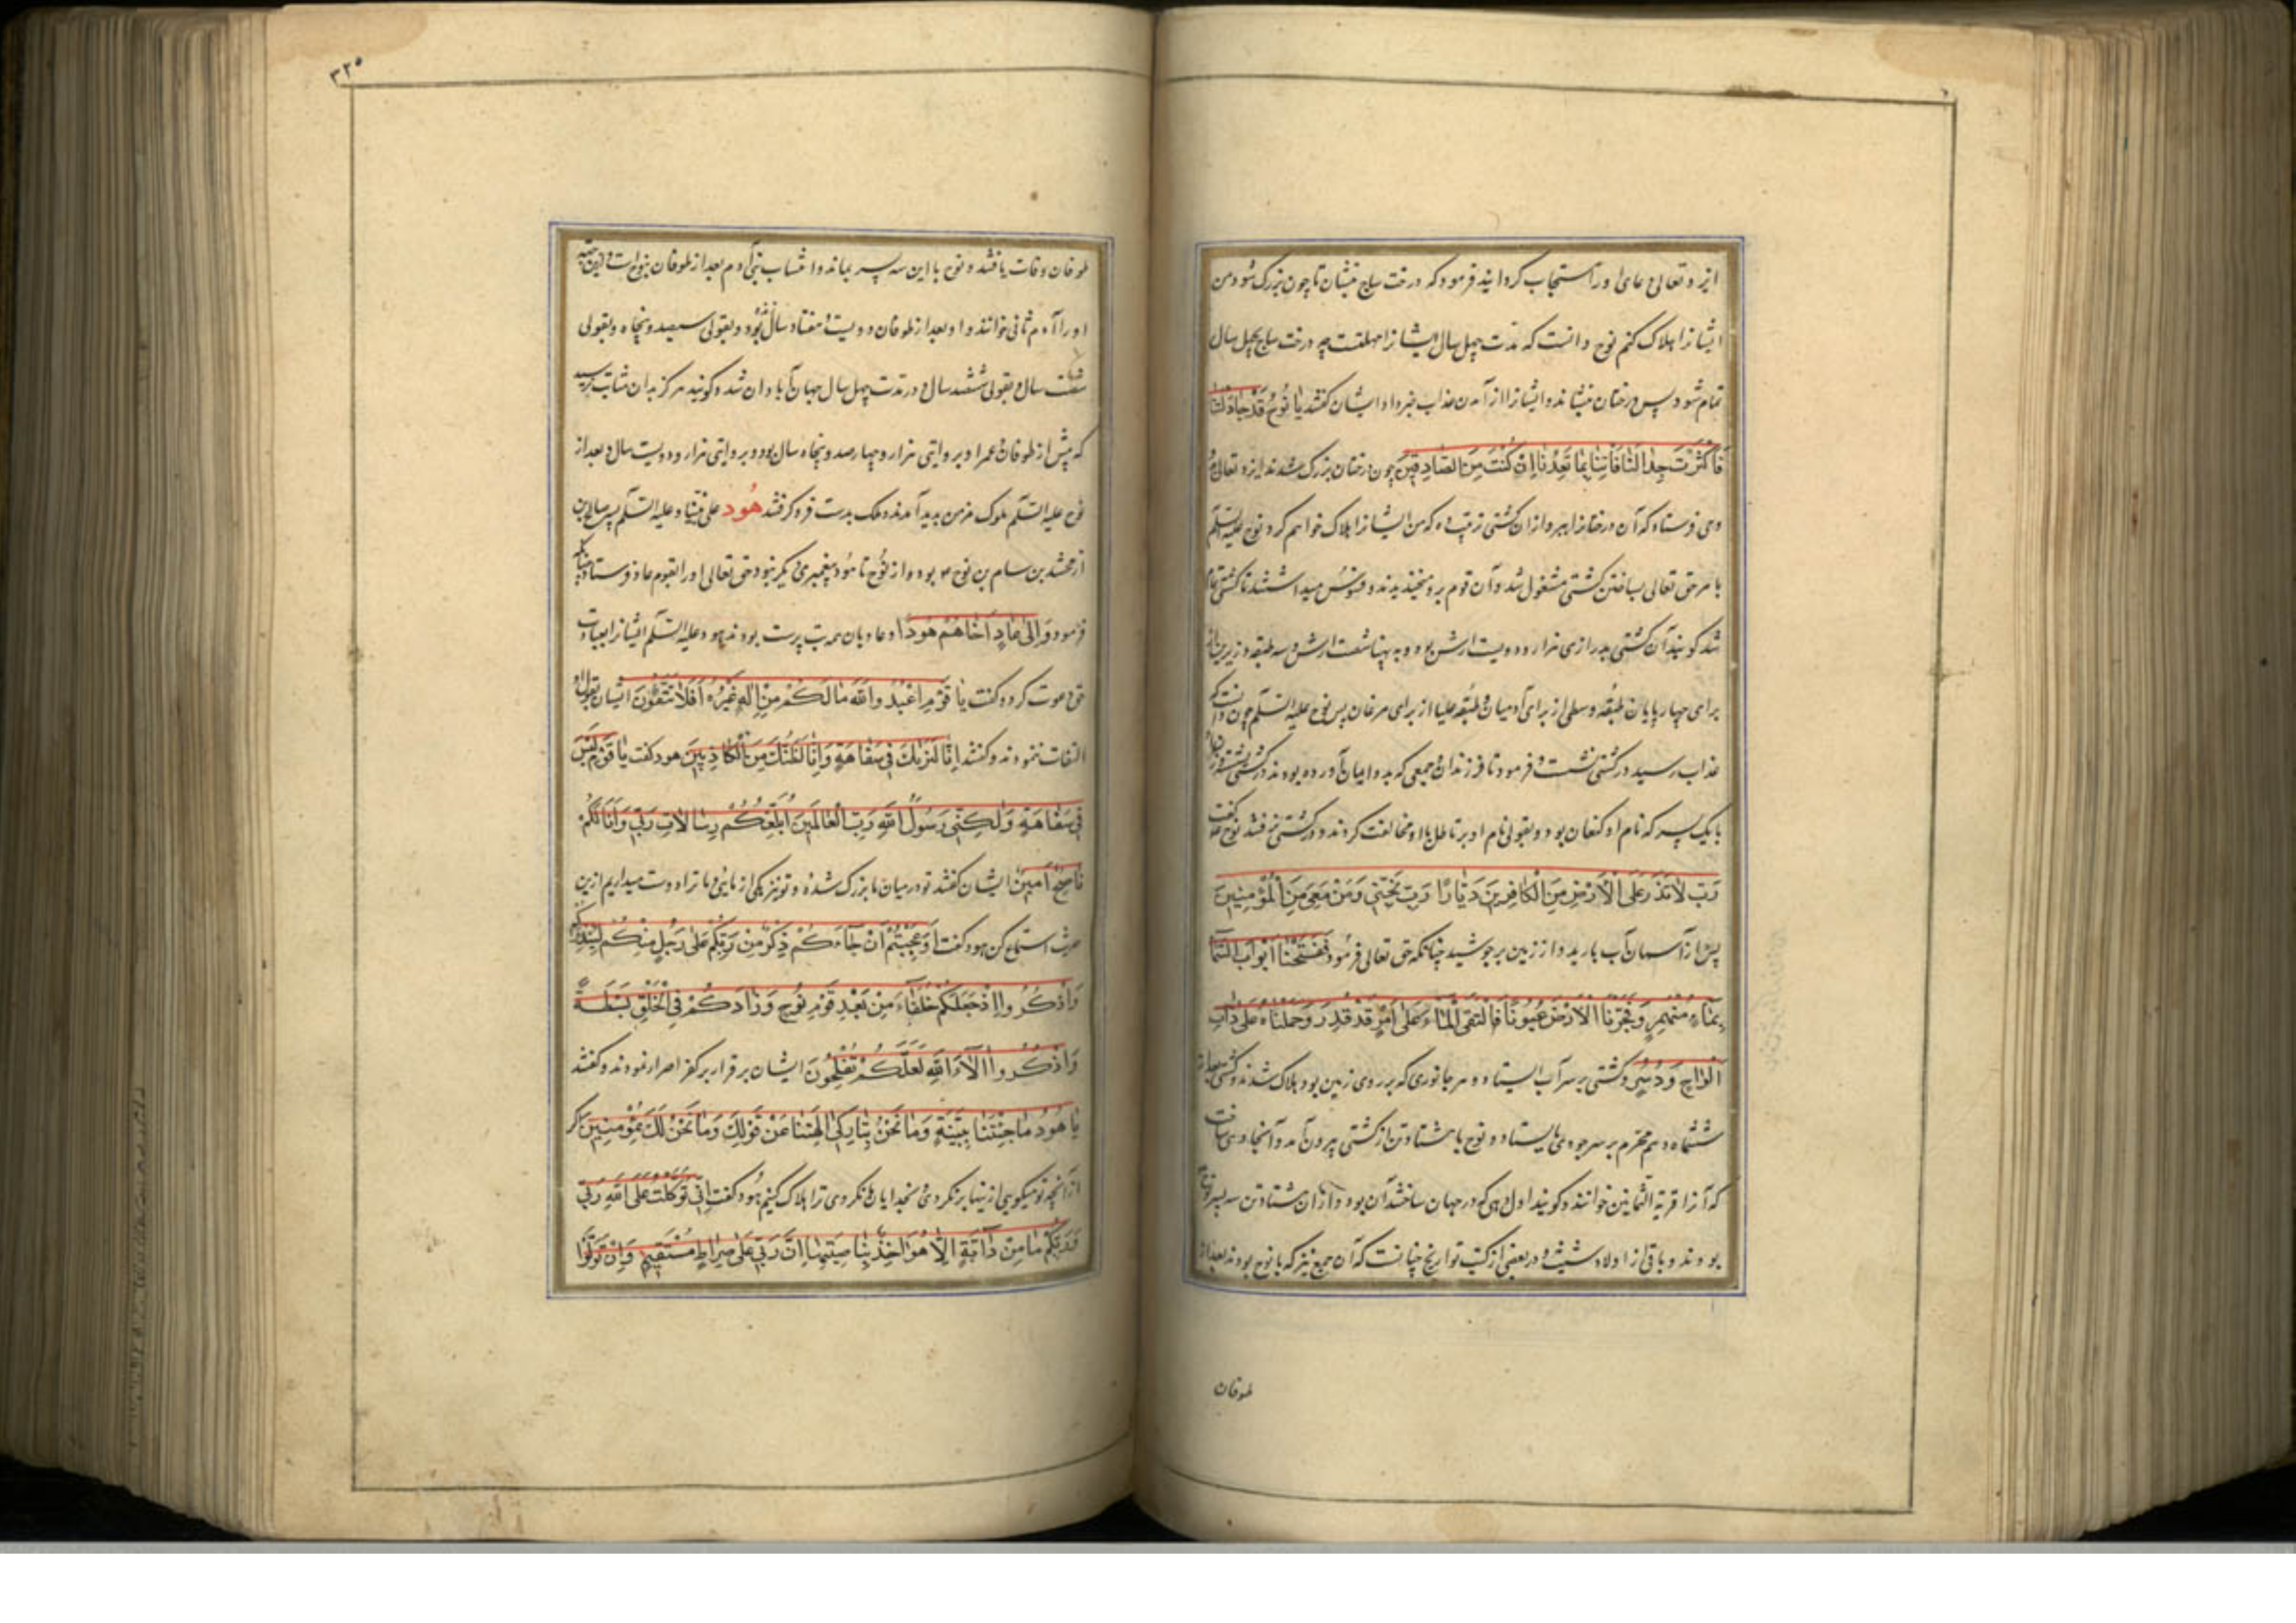 ایزد تعالی دعای او را مستجاب گردانید فرمود که درخت ساج بنشان تا چون بزرک شود من
ایشانرا هلاک کنم نوح دانست که مدت چهل سال ایشانرا مهلتست چه درخت ساج بچهل سال
تمام شود پس درختان بنشاند و ایشانرا از آمدن عذاب خبر داد ایشان کفتند یا نُوحُ قَدْ جَادَلْتَنَا
فَاَكْثَرْتَ جِدَالَنَا فَأْتِنَا بِمَا تَعِدُنَا اِنْ كُنْتَ مِنَ الصَّادِقِينَ چون درختان بزرک شدند ایزد تعالی
وحی فرستاد که آن درختانرا ببر و از آن کشتی ترتیب ده که من ایشانرا هلاک خواهم کرد نوح علیه السّلم
بامر حق تعالی بساختن کشتی مشغول شد و آن قوم برو میخندیدند و فسوس میداشتند تا کشتی تمام
شد کویند آن کشتی بدرازی هزار و دویست ارش بود و به پهنا شصت ارش و سه طبقه زیرین از
برای چهارپایان طبقه وسطی از برای آدمیان و طبقه علیا از برای مرغان پس نوح علیه السّلم چون دانست که
عذاب رسید در کشتی نشست و فرمود تا فرزندان و جمعی که بدو ایمان آورده بودند در کشتی نشستند
با یک پسر که نام او کنعان بود و بقولی نام او بر با او مخالفت کردند و در کشتی نرفتند نوح کفت
رَبِّ لَا تَذَرْ عَلَى الْاَرْضِ مِنَ الْكَافِرِينَ دَيَّارًا رَبِّ نَجِّنِي وَمَنْ مَعِيَ مِنَ الْمُؤْمِنِينَ
پس از آسمان آب بارید و از زمین برجوشید چنانکه حق تعالی فرمود فَفَتَحْنَا اَبْوَابَ السَّمَا
بِمَاءٍ مُنْهَمِرٍ وَفَجَّرْنَا الْاَرْضَ عُيُونًا فَالْتَقَى الْمَاءُ عَلَى اَمْرٍ قَدْ قُدِرَ وَحَمَلْنَاهُ عَلَى ذَاتِ
اَلْوَاحٍ وَدُسُرٍ و کشتی بر سر آب ایستاد و هر جانوری که بر روی زمین بود هلاک شدند و کشتی بعد از
ششماه دهم محرم بر سر جودی بایستاد و نوح با هشتاد تن از کشتی بیرون آمد و آنجا دهی ساخت
که آنرا قریة الثمانین خوانند و کویند اول دهی که در جهان ساختند آن بود و از آن هشتاد تن سه پسر نوح
بودند و باقی از اولاد شیث و در بعضی از کتب تواریخ چنانست که آن جمع نیز که با نوح بودند بعد از
طوفان
٣٢٥
طوفان وفات یافتند و نوح با این سه پسر بماند و انتساب بنی آدم بعد از طوفان بنوح است
او را آدم ثانی خوانند و او بعد از طوفان دویست و هفتاد سال بزیود و بقولی سیصد و پنجاه و بقولی
سال و بقولی ششصد سال و در مدت چهل سال جهان آبادان شد و کویند هرکز بدان مثابت نرسید
که پیش از طوفان و عمر او بروایتی هزار و چهارصد و پنجاه سال بود و بروایتی هزار و دویست سال و بعد از
نوح علیه السّلم ملوک بدید آمدند و ملک بدست فرو کرفتند هُود علی نبیّنا و علیه السّلم پسر سالح بن
ارفخشد بن سام بن نوح بود و از نوح تا هود پیغمبری دیکر نبود حق تعالی او را بقوم عاد فرستاد
فرمود وَاِلَى عَادٍ اَخَاهُمْ هُودًا و عادیان همه بت پرست بودند هود علیه السّلم ایشانرا بعبادت
حق دعوت کرد و کفت یَا قَوْمِ اعْبُدُوا اللّهَ مَا لَكُمْ مِنْ اِلَهٍ غَيْرُهُ اَفَلَا تَتَّقُونَ ایشان بقول او
التفات ننمودند و کفتند اِنَّا لَنَرَيكَ فِي سَفَاهَةٍ وَاِنَّا لَنَظُنُّكَ مِنَ الْكَاذِبِينَ هود کفت یَا قَوْمِ لَيْسَ
فِي سَفَاهَةٍ وَلَكِنِّي رَسُولٌ اللّهِ رَبِّ الْعَالَمِينَ اُبَلِّغُكُمْ رِسَالَاتِ رَبِّي وَاَنَا لَكُمْ
نَاصِحٌ اَمِينٌ ایشان کفتند تو در میان ما بزرک شدهٔ و تو نیز یکی از مایی و ما ترا دوست میداریم ازین
حدیث استماع کن هود کفت اَوَعَجِبْتُمْ اَنْ جَاءَكُمْ ذِكْرٌ مِنْ رَبِّكُمْ عَلَى رَجُلٍ مِنْكُمْ لِيُنْذِرَكُمْ
وَاذْكُرُوا اِذْ جَعَلَكُمْ خُلَفَاءَ مِنْ بَعْدِ قَوْمِ نُوحٍ وَزَادَكُمْ فِي الْخَلْقِ بَسْطَةً
وَاذْكُرُوا اٰلَاءَ اللّهِ لَعَلَّكُمْ تُفْلِحُونَ ایشان برقرار بر کفر اصرار نمودند و کفتند
یَا هُودُ مَا جِئْتَنَا بِبَيِّنَةٍ وَمَا نَحْنُ بِتَارِكِي اٰلِهَتِنَا عَنْ قَوْلِكَ وَمَا نَحْنُ لَكَ بِمُؤْمِنِينَ اکر
از آنچه تو میکویی ازینها برنکردی و بخدایان ما نکروی ترا هلاک کنیم هود کفت اِنِّي تَوَكَّلْتُ عَلَى اللّهِ رَبِّي
وَرَبِّكُمْ مَا مِنْ دَابَّةٍ اِلَّا هُوَ اٰخِذٌ بِنَاصِيَتِهَا اِنَّ رَبِّي عَلَى صِرَاطٍ مُسْتَقِيمٍ وَاِنْ تَوَلَّوْا